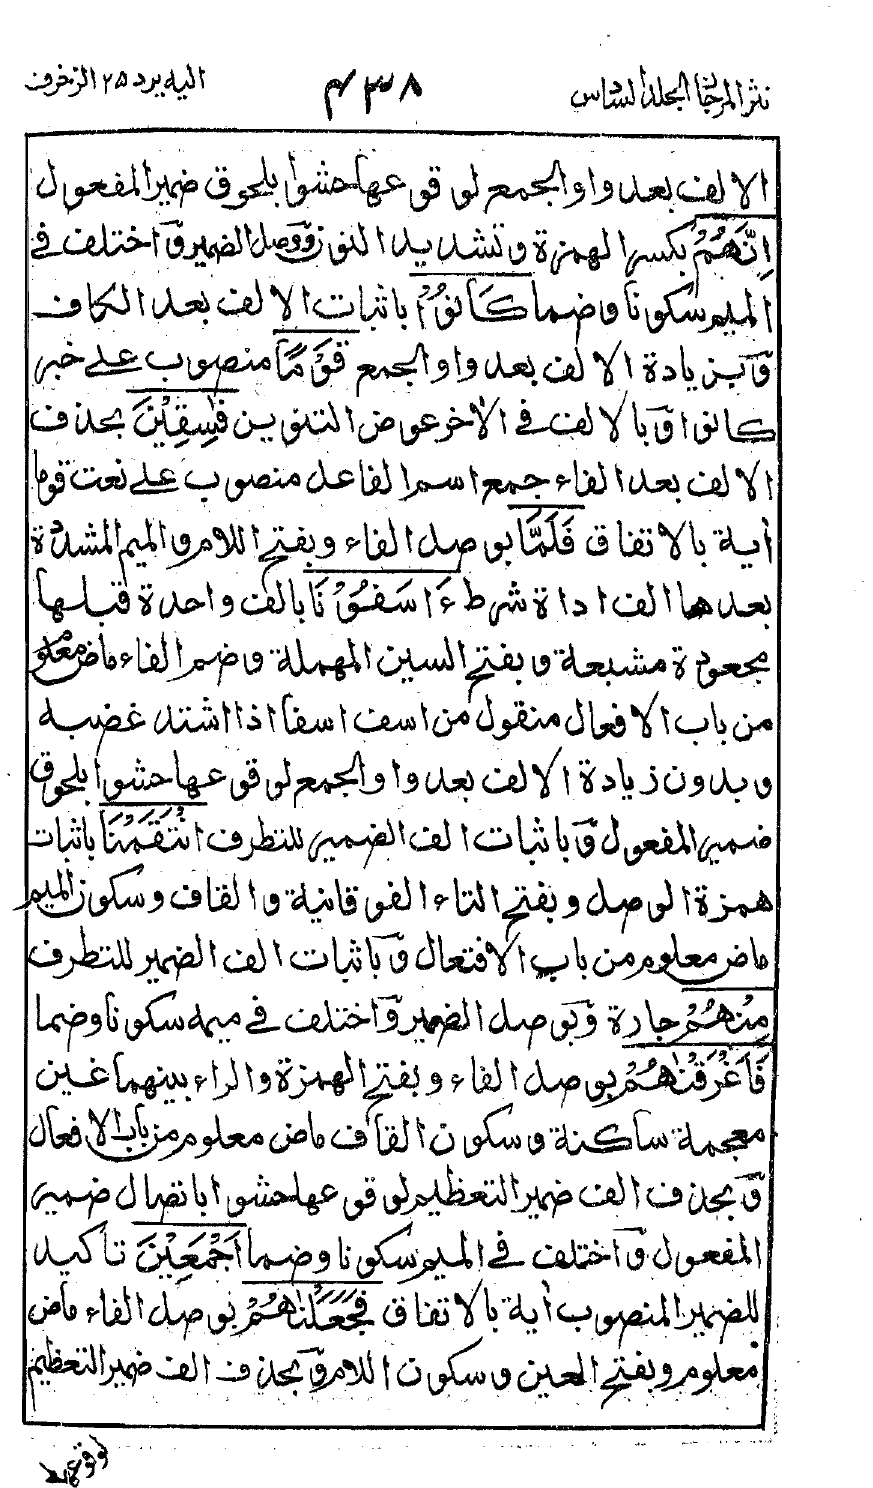 نثر المرجان المجلد السادس
٤٣٨
اليه يرد ٢٥ الزخرف
الالف بعد واو الجمع لوقوعها حشوا بلحوق ضمير المفعول
اِنَّهُمْ بكسر الهمزة وتشديد النون ووصل الضمير وَاختلف في
الميم سكونا وضما كَانُوْا باثبات الالف بعد الكاف
وَبزيادة الالف بعد واو الجمع قَوْمًا منصوب على خبر
كانوا وَبالالف في الاخر عوض التنوين فٰسِقِيْنَ بحذف
الالف بعد الفاء جمع اسم الفاعل منصوب على نعت قوما
اٰية بالاتفاق فَلَمَّا بوصل الفاء وبفتح اللام والميم المشددة
بعدها الف اداة شرط ءَاسَفُوْنَا بالف واحدة قبلها
مجعودة مشبعة وبفتح السين المهملة وضم الفاء ماض معلوم
من باب الافعال منقول من اسف اسفا اذا اشتد غضبه
وبدون زيادة الالف بعد واو الجمع لوقوعها حشوا بلحوق
ضمير المفعول وَباثبات الف الضمير للتطرف انْتَقَمْنَا باثبات
همزة الوصل وبفتح التاء الفوقانية والقاف وسكون الميم
ماض معلوم من باب الافتعال وَباثبات الف الضمير للتطرف
مِنْهُمْ جارة وَبوصل الضمير وَاختلف في ميمه سكونا وضما
فَاَغْرَقْنٰهُمْ بوصل الفاء وبفتح الهمزة والراء بينهما غين
معجمة ساكنة وسكون القاف ماض معلوم من باب الافعال
وَبحذف الف ضمير التعظيم لوقوعها حشوا باتصال ضمير
المفعول وَاختلف في الميم سكونا وضما اَجْمَعِيْنَ تاكيد
للضمير المنصوب اٰية بالاتفاق فَجَعَلْنٰهُمْ بوصل الفاء ماض
معلوم وبفتح العين وسكون اللام وَبحذف الف ضمير التعظيم
لوقوعها